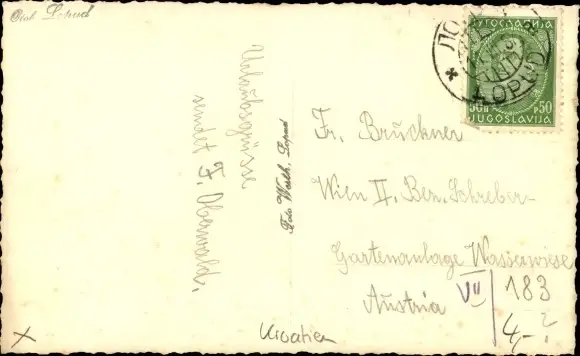 Otok Lopud
Urlaubsgrüsse
sendet F. Oberwald.
Foto Worth, Lopud
ЈУГОСЛАВИЈА
50 П P 50
JUGOSLAVIJA
LOPUD
Fr. Brückner
Wien II. Ber. Schreber-
Gartenanlage Wasserwiese
Austria
VII 183
4,- ?
Kroatien
X